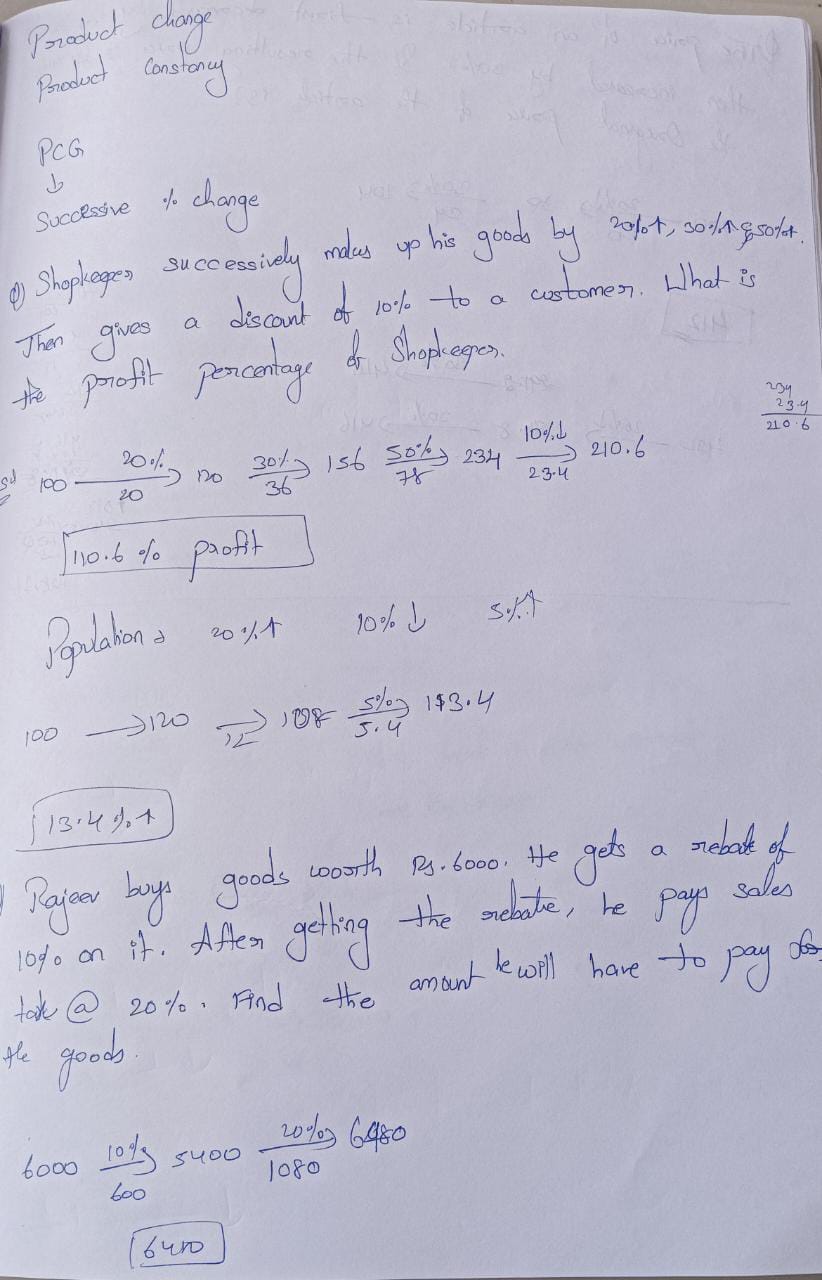 Product change
Product Constancy
PCG
↓
Successive % change
Q) Shopkeeper successively makes up his goods by 20%↑, 30%↑ & 50%↑.
Then gives a discount of 10% to a customer. What is
the profit percentage of Shopkeeper.
234
23.4
210.6
Sol 100 20%/20 → 120 30%/36 → 156 50%/78 → 234 10%↓/23.4 → 210.6
110.6 % profit
Population → 20%↑ 10%↓ 5%↑
100 → 120 →/12 108 5%/5.4 → 113.4
13.4%↑
Rajeev buys goods worth Rs. 6000. He gets a rebate of
10% on it. After getting the rebate, he pays sales
tax @ 20%. Find the amount he will have to pay for
the goods.
6000 10%/600 → 5400 20%/1080 → 6480